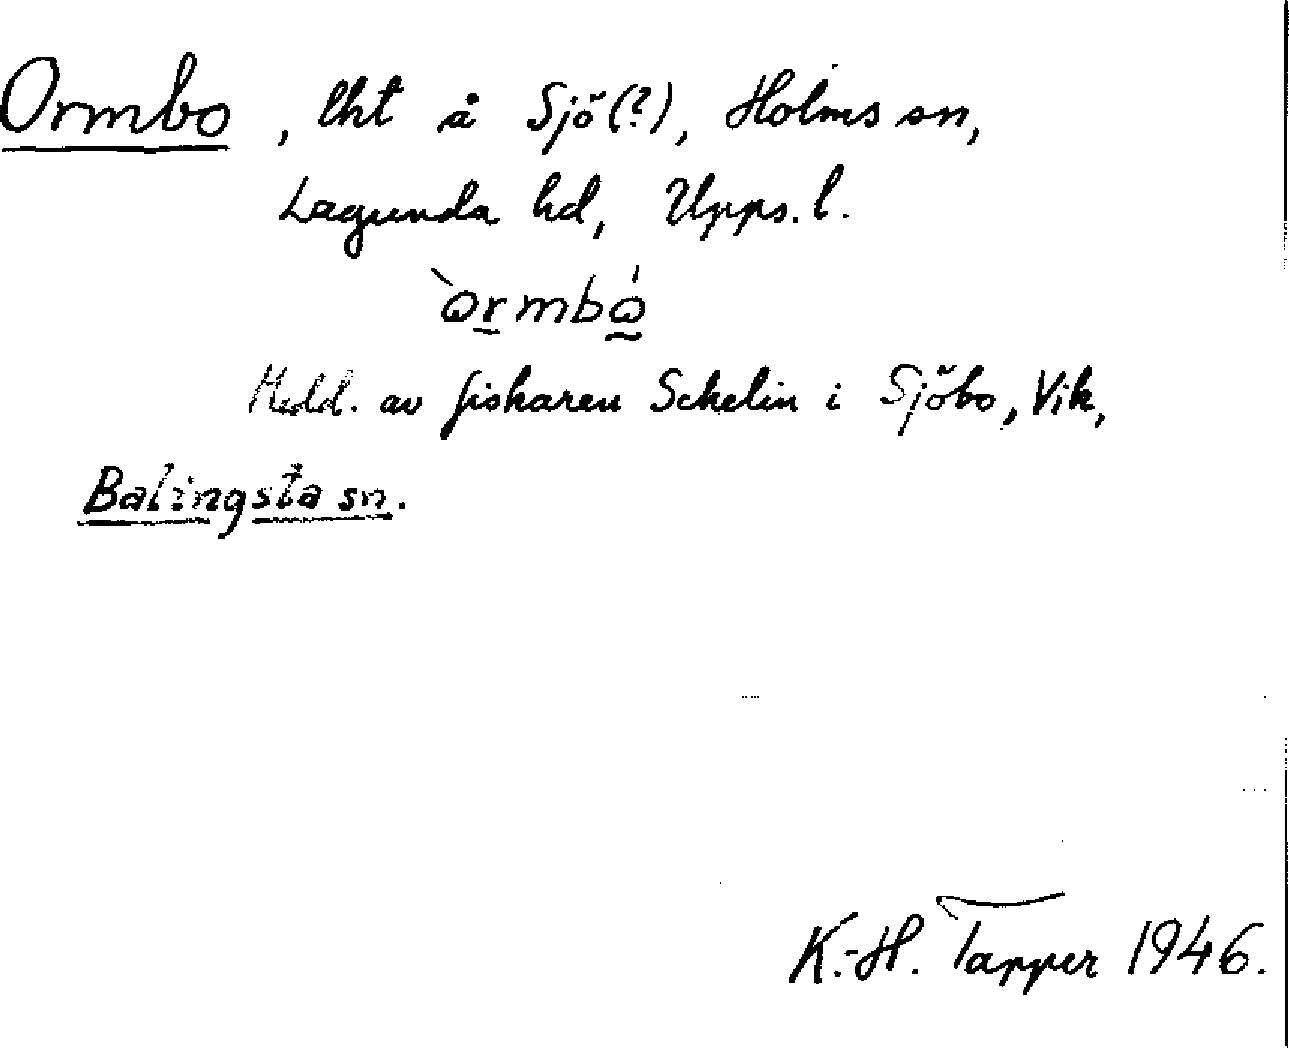 Ormbo, lht å Sjö(?), Holms sn,
Lagunda hd, Upps. l.
òrmbó
Medd. av fiskaren Schelin i Sjöbo, Vik,
Balingsta sn.
K.-H. Tapper 1946.